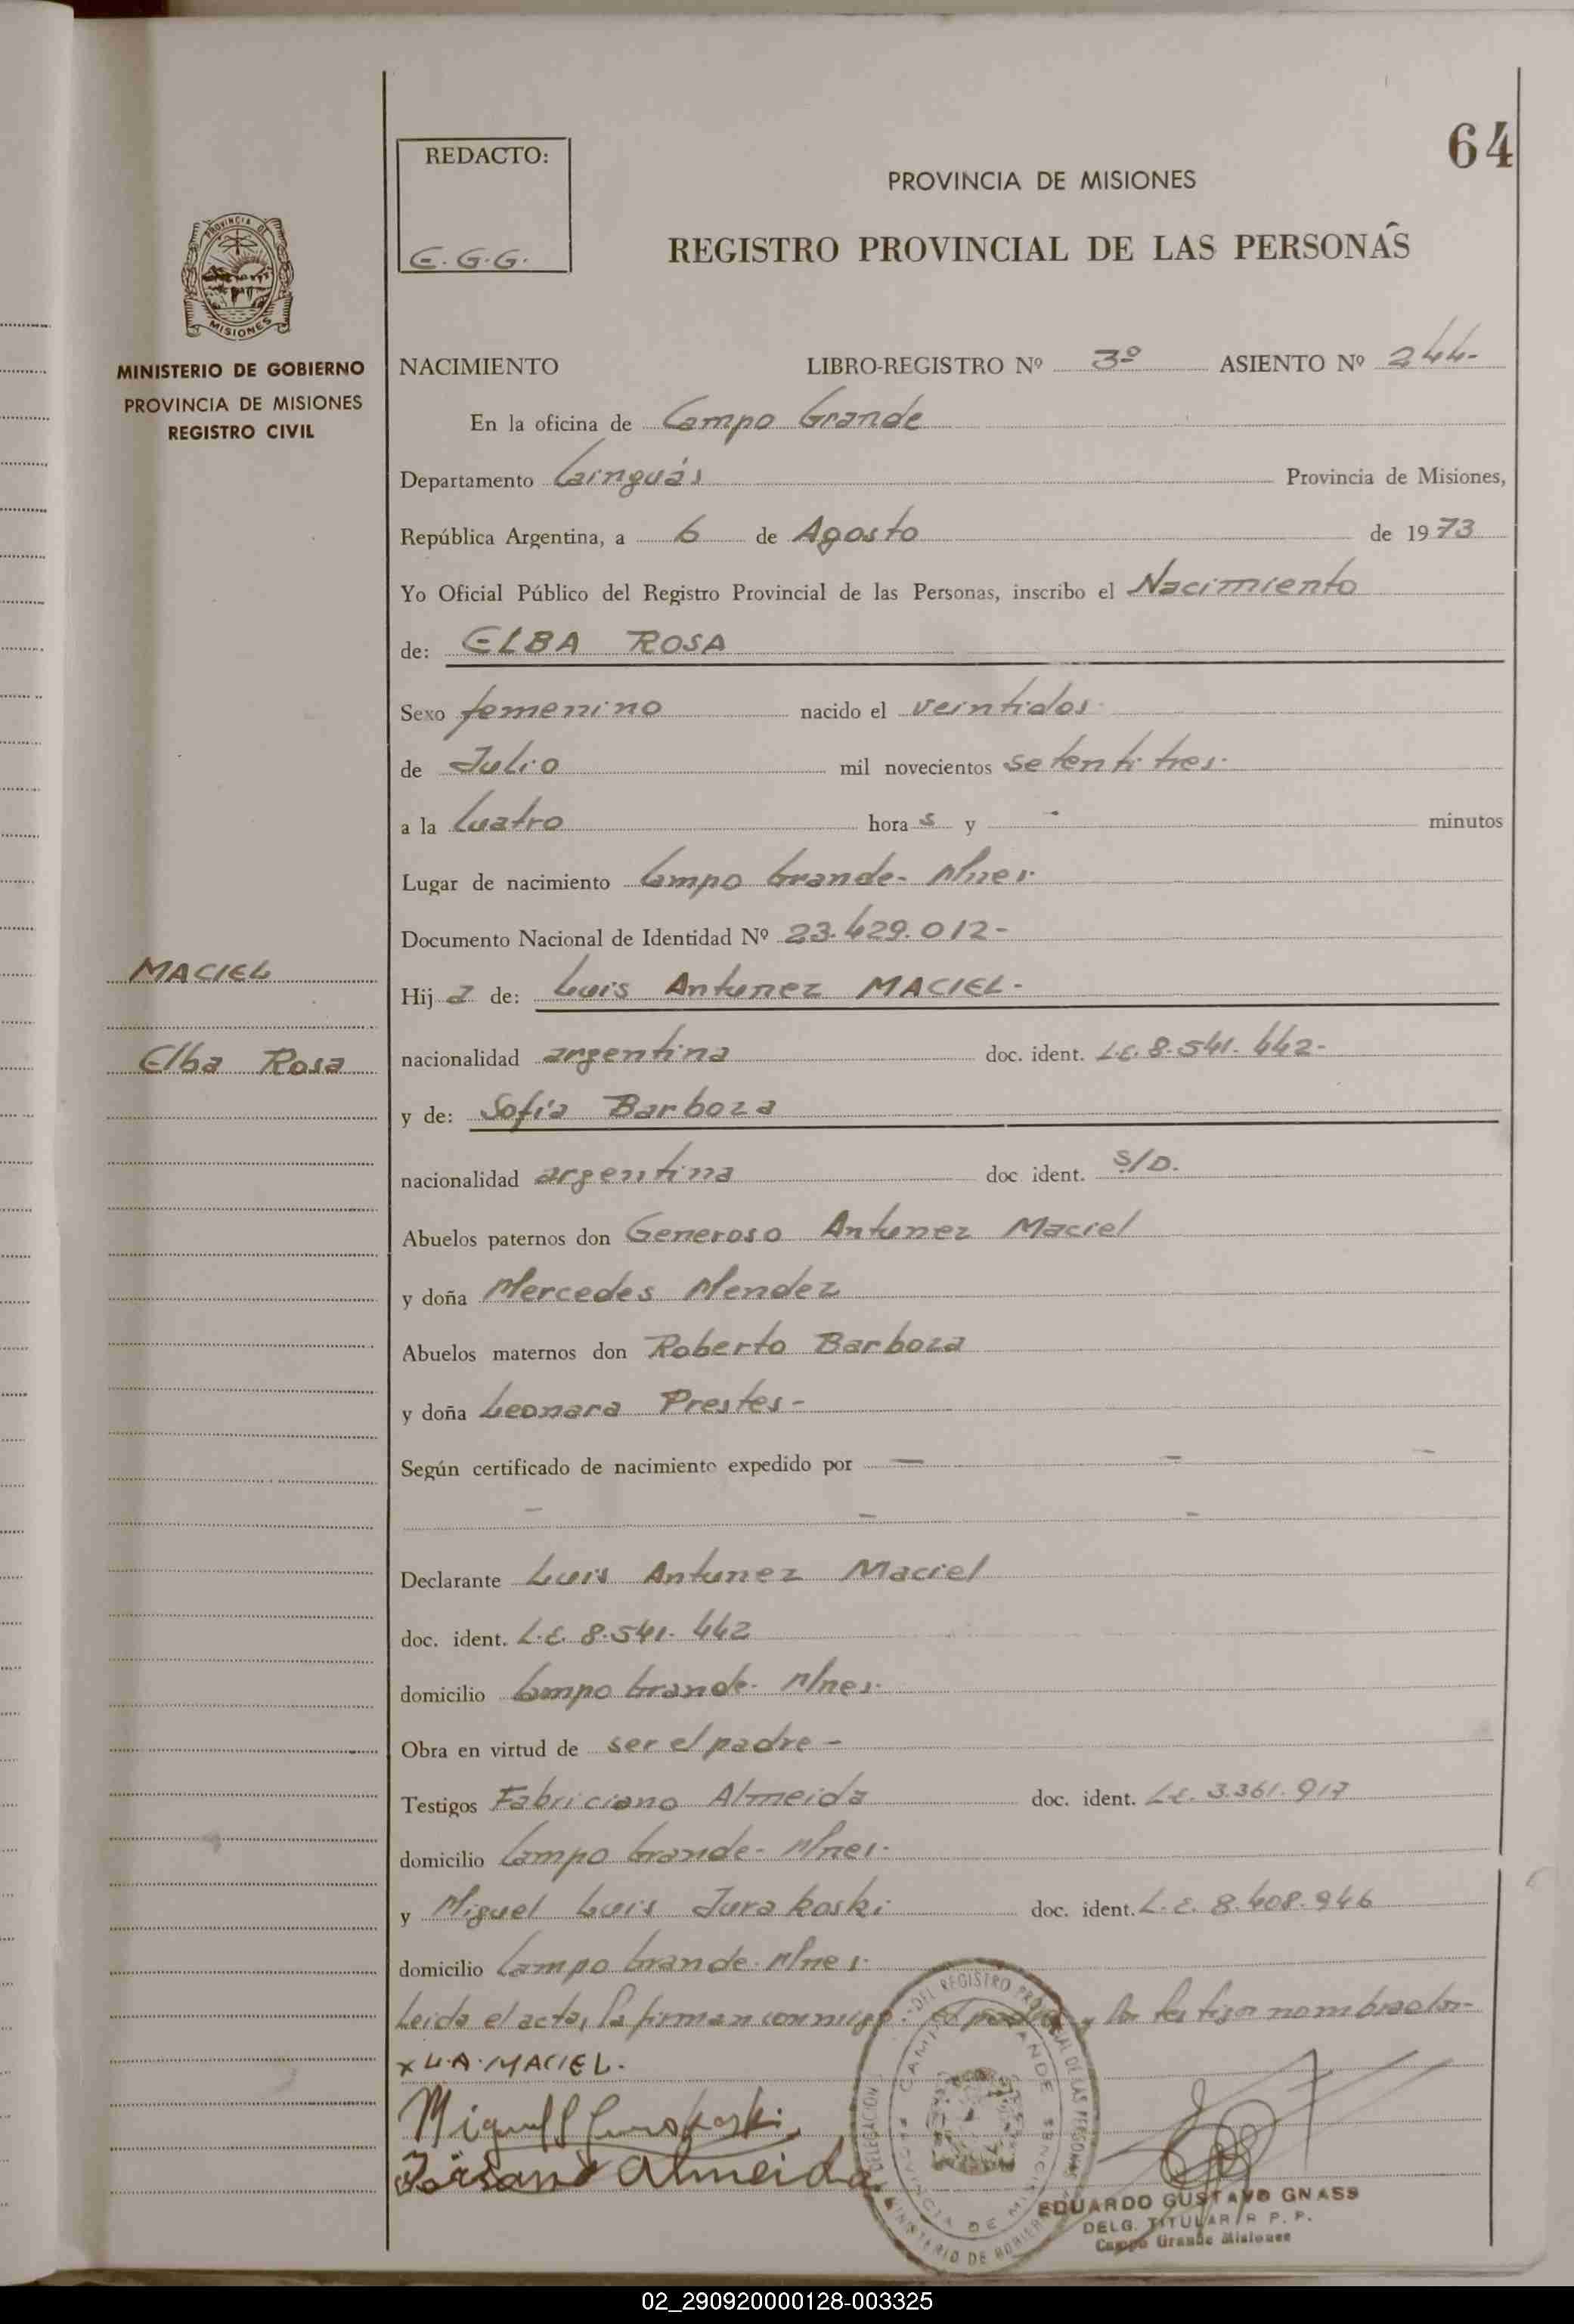 64
REDACTO:
E.G.G.
PROVINCIA DE MISIONES
REGISTRO PROVINCIAL DE LAS PERSONAS
PROVINCIA DE
MISIONES
MINISTERIO DE GOBIERNO
PROVINCIA DE MISIONES
REGISTRO CIVIL
NACIMIENTO LIBRO-REGISTRO Nº 3º ASIENTO Nº 244-
En la oficina de Campo Grande
Departamento Cainguás Provincia de Misiones,
República Argentina, a 6 de Agosto de 1973
Yo Oficial Público del Registro Provincial de las Personas, inscribo el Nacimiento
de: ELBA ROSA
Sexo femenino nacido el veintidos
de Julio mil novecientos setenti tres.
a la Cuatro hora s y - minutos
Lugar de nacimiento Campo Grande- Mnes.
Documento Nacional de Identidad Nº 23.429.012-
MACIEL
Hij a de: Luis Antunez MACIEL-
Elba Rosa
nacionalidad argentina doc. ident. L.E. 8.541.442-
y de: Sofia Barboza
nacionalidad argentina doc ident. S/D.
Abuelos paternos don Generoso Antunez Maciel
y doña Mercedes Mendez
Abuelos maternos don Roberto Barboza
y doña Leonara Prestes-
Según certificado de nacimiento expedido por — - -
- - -
Declarante Luis Antunez Maciel
doc. ident. L.E. 8.541.442
domicilio Campo Grande- Mnes.
Obra en virtud de ser el padre-
Testigos Fabriciano Almeida doc. ident. L.E. 3.361.917
domicilio Campo Grande- Mnes.
y Miguel Luis Jurakoski doc. ident. L.E. 8.408.946
domicilio Campo Grande- Mnes.
Leida el acta, la firman conmigo el padre y los testigos nombrados-
x L.A. MACIEL.
Almeida
DELEGACION DEL REGISTRO PROVINCIAL DE LAS PERSONAS
CAMPO GRANDE
PROVINCIA DE MISIONES
MINISTERIO DE GOBIERNO
EDUARDO GUSTAVO GNASS
DELG. TITULAR R. P. P.
Campo Grande Misiones
02_290920000128-003325